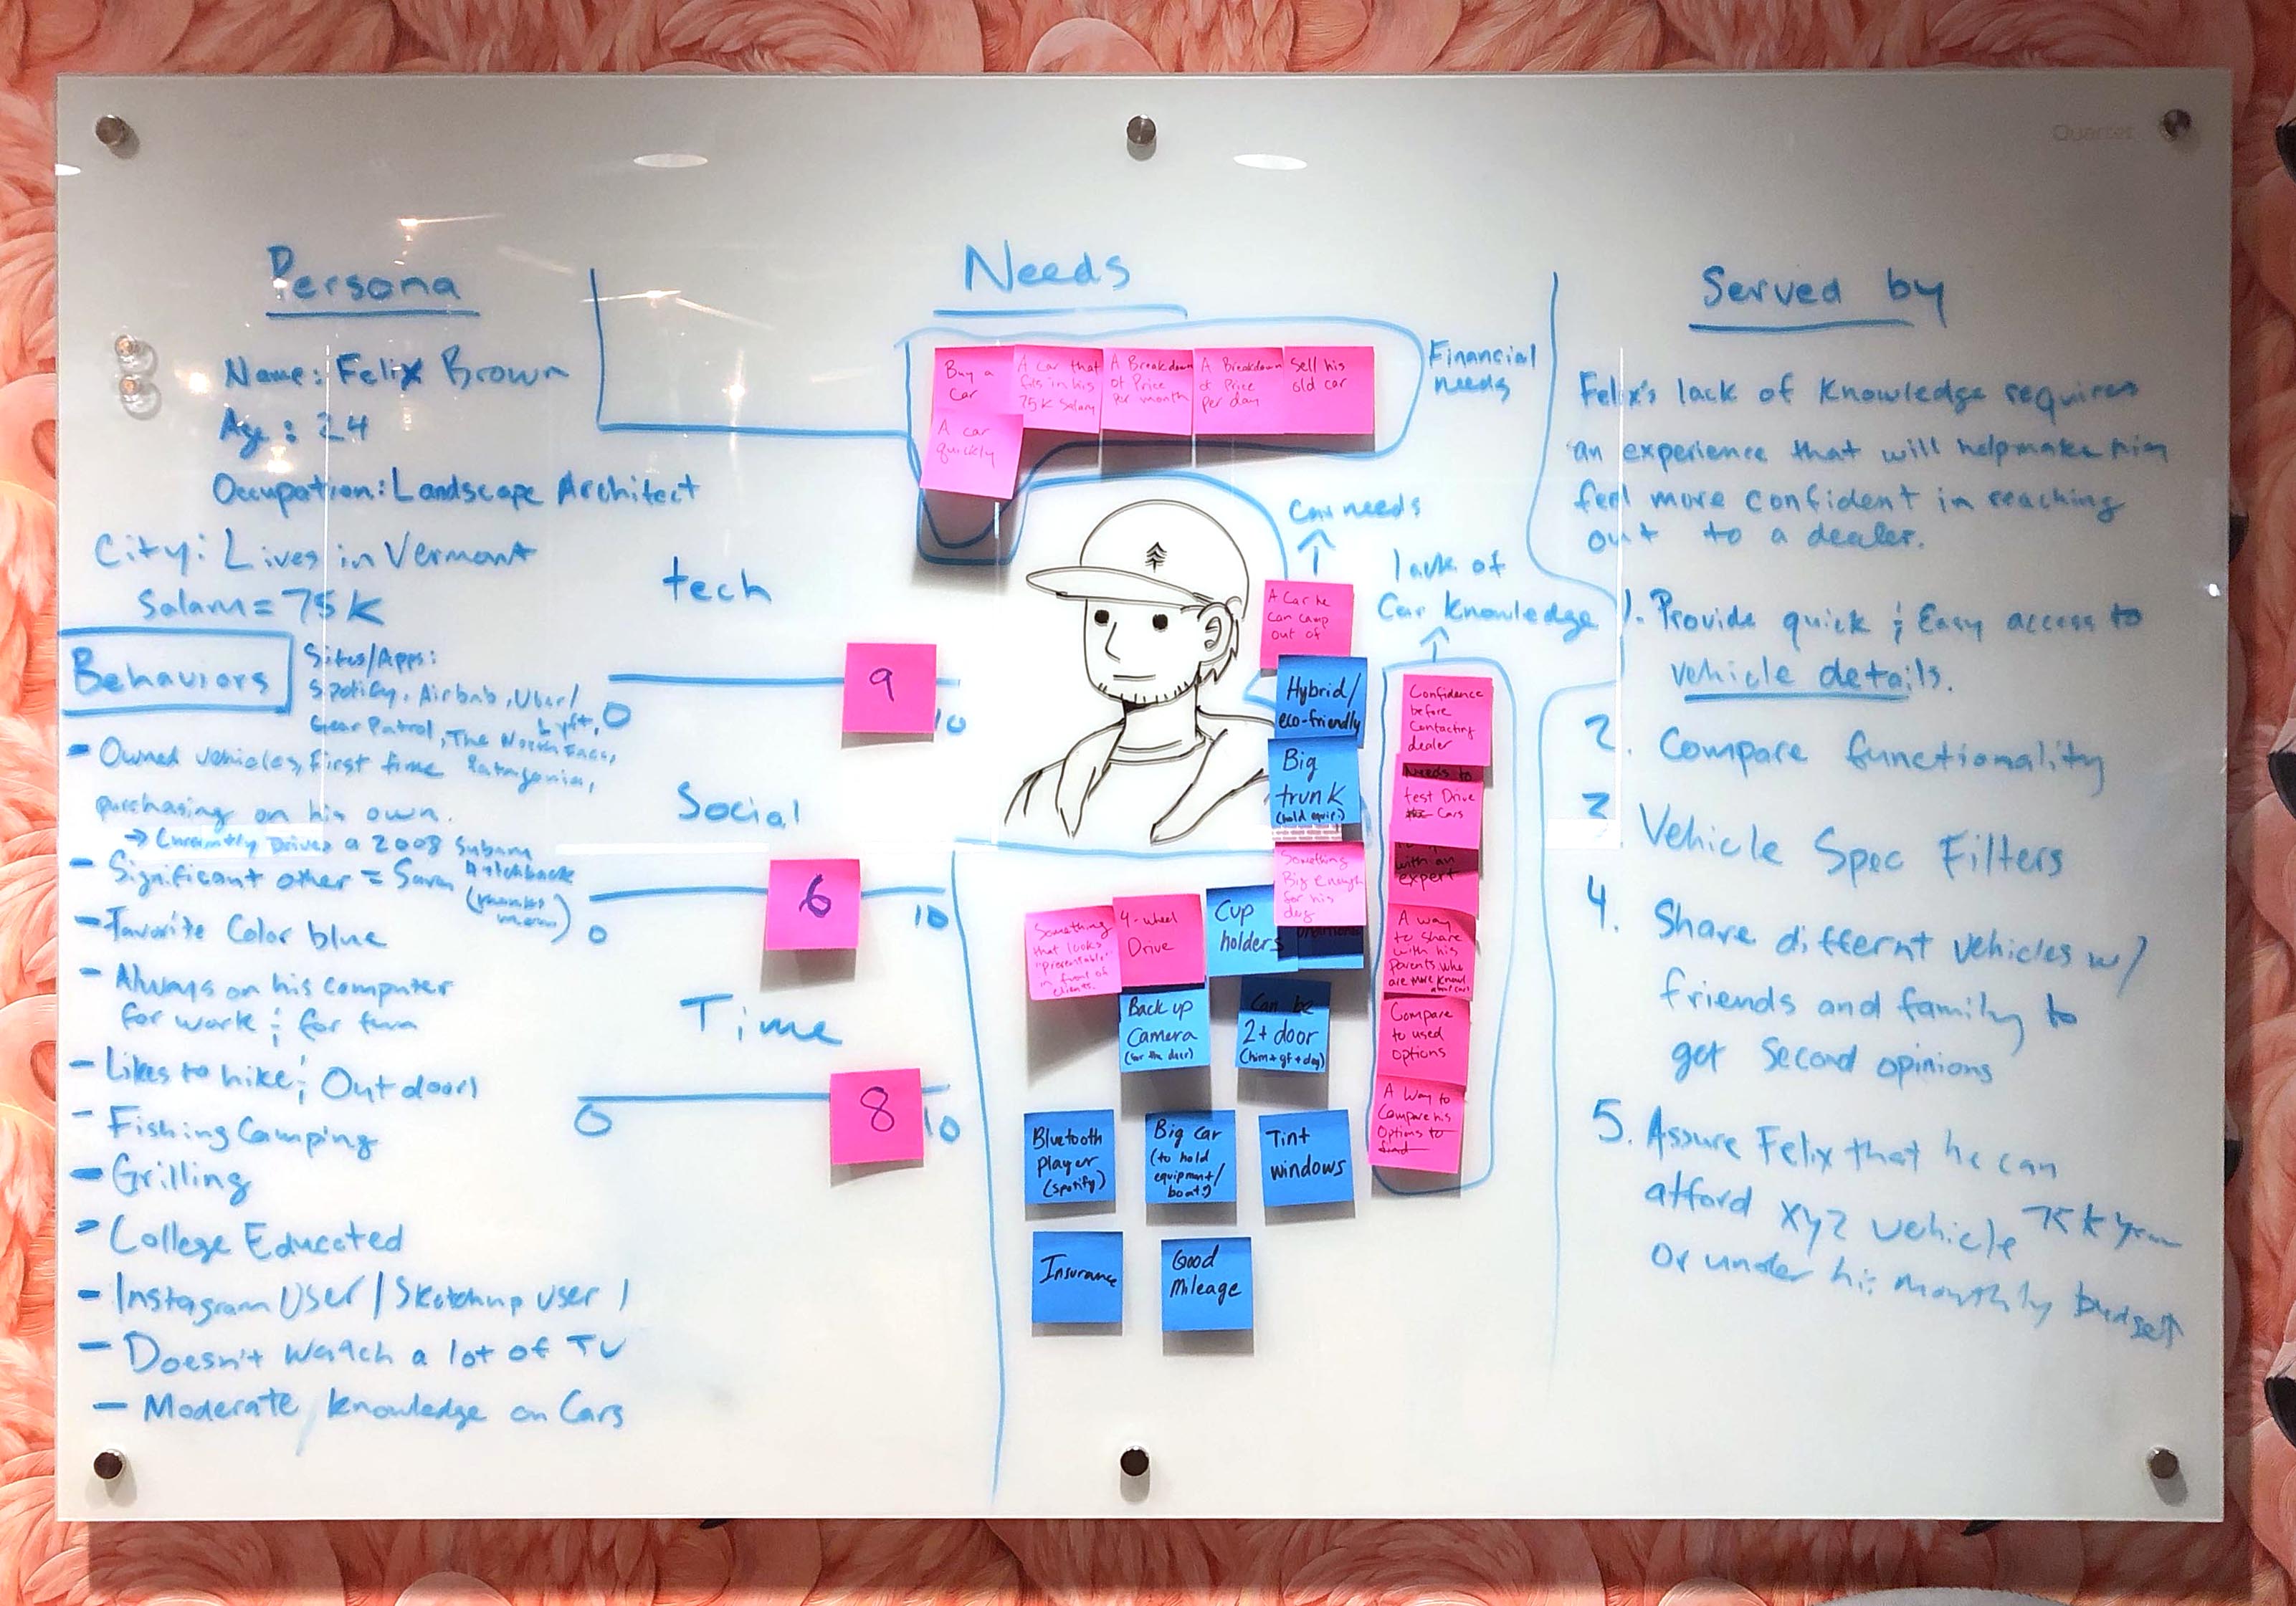 Quartet
Persona
Name: Felix Brown
Age: 24
Occupation: Landscape Architect
City: Lives in Vermont
Salary = 75K
Behaviors
Sites/Apps:
Spotify, Airbnb, Uber/
Lyft,
Gear Patrol, The North Face,
Patagonia,
- Owned vehicles, First time
purchasing on his own.
→ Currently Drives a 2008 Subaru
Hatchback
(thanks
mom)
- Significant other = Sara
- Favorite Color blue
- Always on his computer
for work & for fun
- Likes to hike & Outdoors
- Fishing Camping
- Grilling
- College Educated
- Instagram User / Sketchup user /
- Doesn't watch a lot of TV
- Moderate knowledge on Cars
tech
0
9
10
Social
0
6
10
Time
0
8
10
Needs
Financial
needs
Buy a
car
A car that
fits in his
75K Salary
A Breakdown
of Price
Per month
A Breakdown
of Price
per day
Sell his
old car
A car
quickly
Car needs
A Car he
can camp
out of
Hybrid/
eco-friendly
Big
trunk
(hold equip.)
Something
Big enough
for his
dog
Something
that looks
"presentable"
in front of
clients.
4-wheel
Drive
Cup
holders
Back up
Camera
Can be
2+ door
(him + gf + dog)
Bluetooth
player
(spotify)
Big Car
(to hold
equipment/
boat?)
Tint
windows
Insurance
Good
Mileage
lack of
Car knowledge
Confidence
before
Contacting
dealer
Needs to
test Drive
Cars
with an
expert
A way
to share
with his
parents who
are more know
about cars
Compare
to used
options
A Way to
Compare his
Options to
find
Served by
Felix's lack of Knowledge requires
an experience that will help make him
feel more confident in reaching
out to a dealer.
1. Provide quick & Easy access to
vehicle details.
2. Compare functionality
3 Vehicle Spec Filters
4. Share differnt vehicles w/
friends and family to
get Second opinions
5. Assure Felix that he can
afford xyz vehicle 75K year
or under his monthly budget